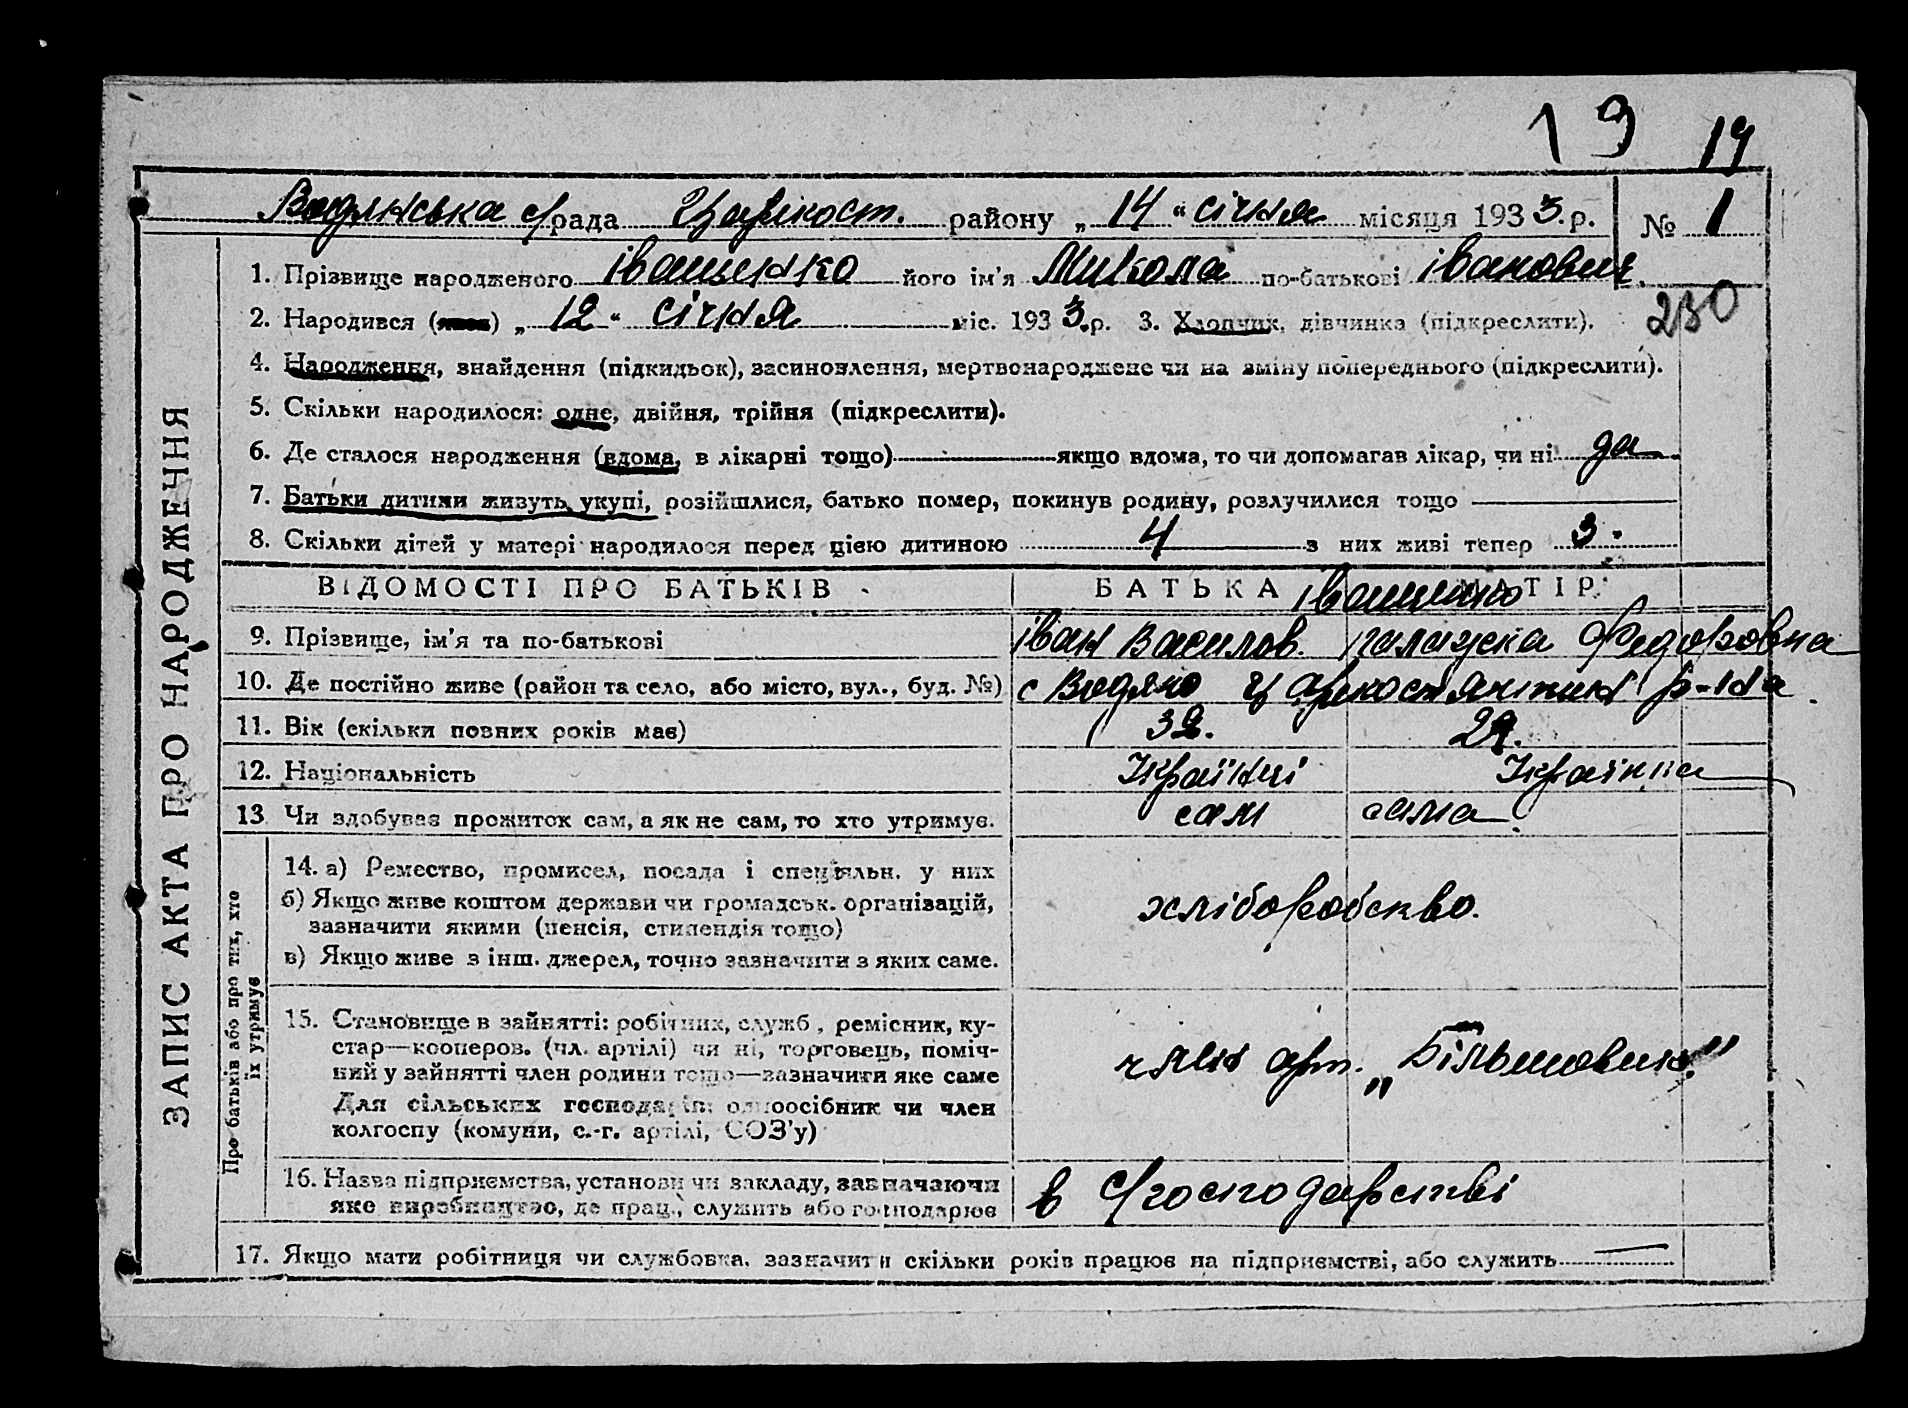 19 19
Водянська с/рада Царікост. району „ 14 “ січня місяця 1933 р. № 1
1. Прізвище народженого Іваненко його ім’я Микола по-батькові Іванович.
2. Народився (лась) „ 12 “ січня міс. 1933 р. 3. Хлопчик, дівчинка (підкреслити).
230
4. Народження, знайдення (підкидьок), засиновлення, мертвонароджене чи на зміну попереднього (підкреслити).
5. Скільки народилося: одне, двійня, трійня (підкреслити).
6. Де сталося народження (вдома, в лікарні тощо) якщо вдома, то чи допомагав лікар, чи ні да
7. Батьки дитини живуть укупі, розійшлися, батько помер, покинув родину, розлучилися тощо
8. Скільки дітей у матері народилося перед цією дитиною 4 з них живі тепер 3.
ЗАПИС АКТА ПРО НАРОДЖЕННЯ
ВІДОМОСТІ ПРО БАТЬКІВ БАТЬКА МАТІР
9. Прізвище, ім’я та по-батькові Іван Василов. Федоровна
10. Де постійно живе (район та село, або місто, вул., буд. №) с Водяно р-на
11. Вік (скільки повних років має) 32. 29.
12. Національність Українці Українка
13. Чи здобуває прожиток сам, а як не сам, то хто утримує. сам сама
Про батьків або про тих, хто
їх утримує
14. а) Ремество, промисел, посада і спеціяльн. у них
б) Якщо живе коштом держави чи громадськ. організацій,
зазначити якими (пенсія, стипендія тощо)
хлібороб­ство.
в) Якщо живе з інш. джерел, точно зазначити з яких саме.
15. Становище в зайнятті: робітник, служб., ремісник, ку-
стар—кооперов. (чл. артілі) чи ні, торговець, поміч-
ний у зайнятті член родини тощо—зазначити яке саме
член арт. „Більшовик“
Для сільських господарів: одноосібник чи член
колгоспу (комуни, с.-г. артілі, СОЗ’у)
16. Назва підприємства, установи чи закладу, зазначаючи
яке виробництво, де прац., служить або господарює
в с/господарстві
17. Якщо мати робітниця чи службовка, зазначити скільки років працює на підприємстві, або служить